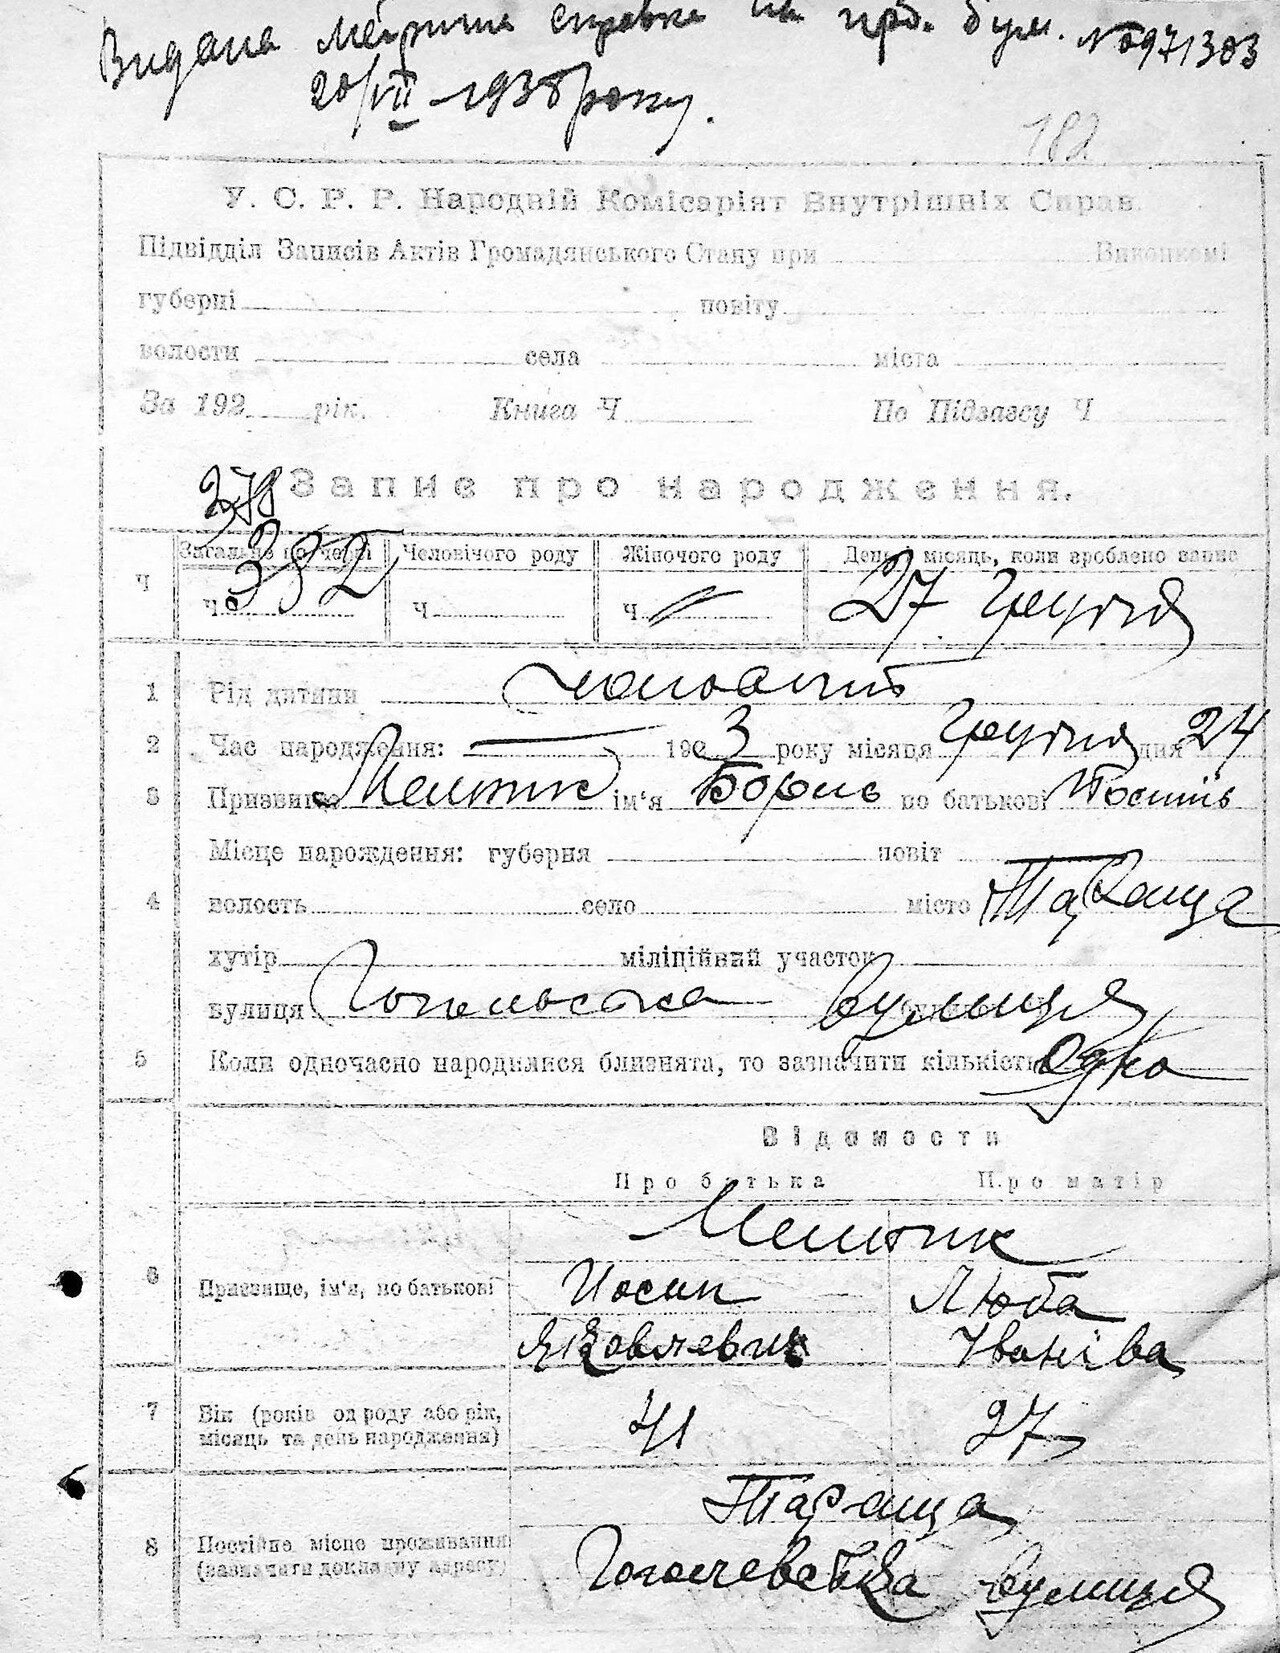 Видана метрична справка на прд. бум. №0971383
20/VII - 1938 року.
182
У. С. Р. Р. Народній Комісаріят Внутрішніх Справ.
Підвідділ Записів Актів Громадянського Стану при Виконкомі
губерні повіту
волости села міста
За 192 рік. Книга Ч По Підзагсу Ч
278
Запис про народження.
Ч Загальне по черзі Чоловічого роду Жіночого роду День і місяць, коли зроблено запис
Ч 382 Ч Ч 27 Грудня
1 Рід дитини чоловічий
2 Час народження: 192 3 року місяця Грудня дня 24
3 Призвище Мельник ім'я Борис по батькові
Місце народження: губерня повіт
4 волость село місто Тараща
хутір міліційний участок
вулиця Гогольська вулиця
5 Коли одночасно народилися близнята, то зазначити кількість одно
Відомости
Про батька Про матір
Мельник
6 Призвище, ім'я, по батькові Иосип Люба
Яковлевич Іванівна
7 Вік (років од роду або рік, 41 27
місяць та день народження)
Тараща
8 Постійне місце проживання
(зазначити докладну адресу) Гоголевська вулиця